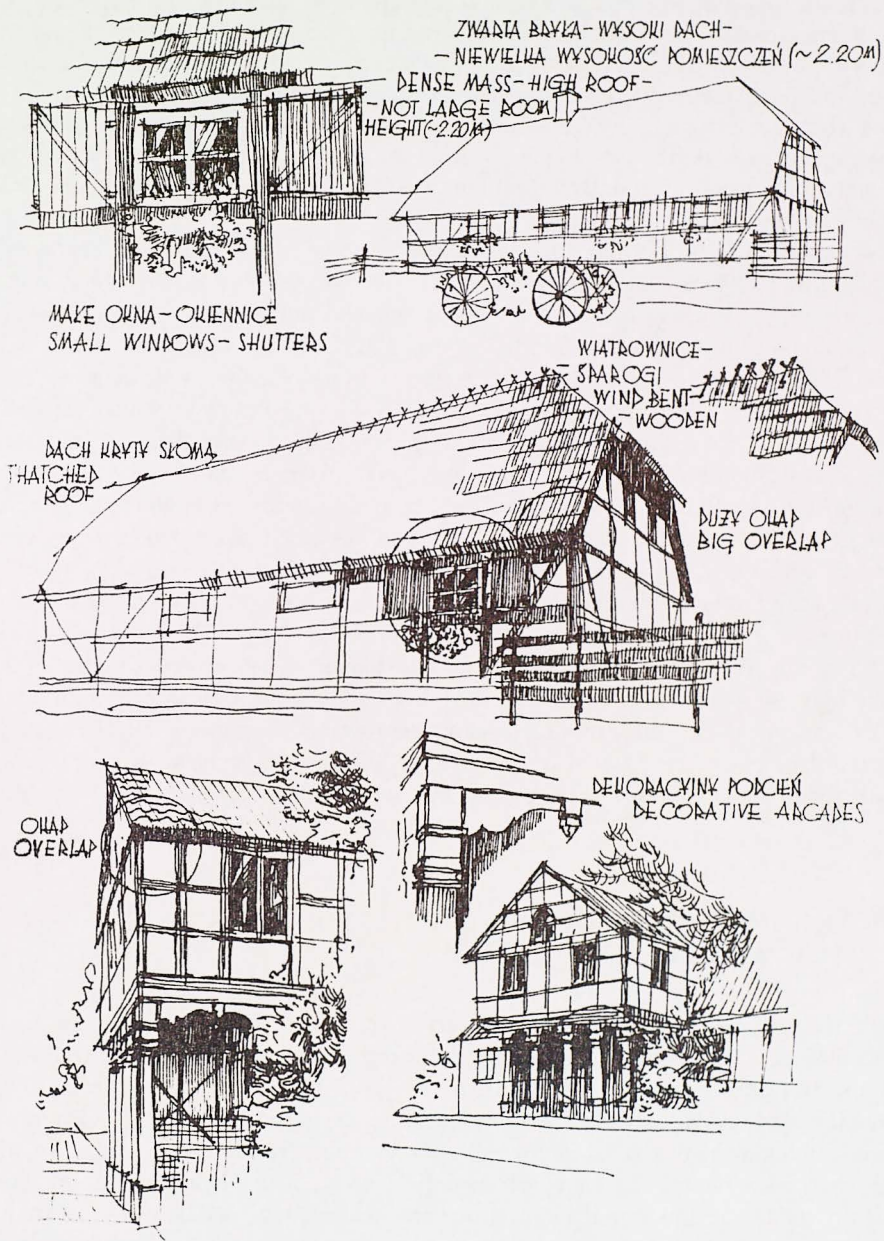 ZWARTA BRYŁA - WYSOKI DACH -
- NIEWIELKA WYSOKOŚĆ POMIESZCZEŃ (~2.20M)
DENSE MASS - HIGH ROOF -
- NOT LARGE ROOM
HEIGHT (~2.20M)
MAŁE OKNA - OKIENNICE
SMALL WINDOWS - SHUTTERS
WIATROWNICE -
- ŚPAROGI
WIND BENT -
- WOODEN
DACH KRYTY SŁOMĄ
THATCHED
ROOF
DUŻY OKAP
BIG OVERLAP
OKAP
OVERLAP
DEKORACYJNY PODCIEŃ
DECORATIVE ARCADES